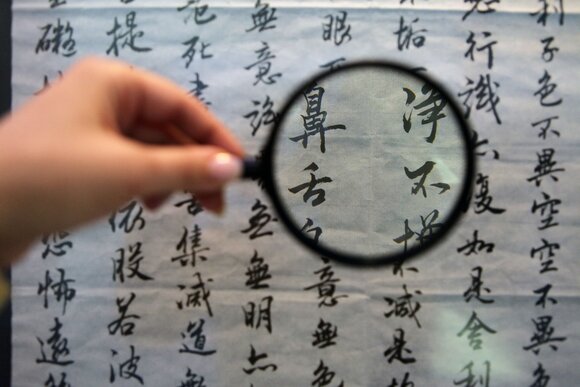 利子色不異空空不異色
行識亦復如是舍利
垢不淨不增不減是
眼鼻舌身意無色
無意識無無明亦
死盡苦集滅道無
提依般若波
礙恐怖遠